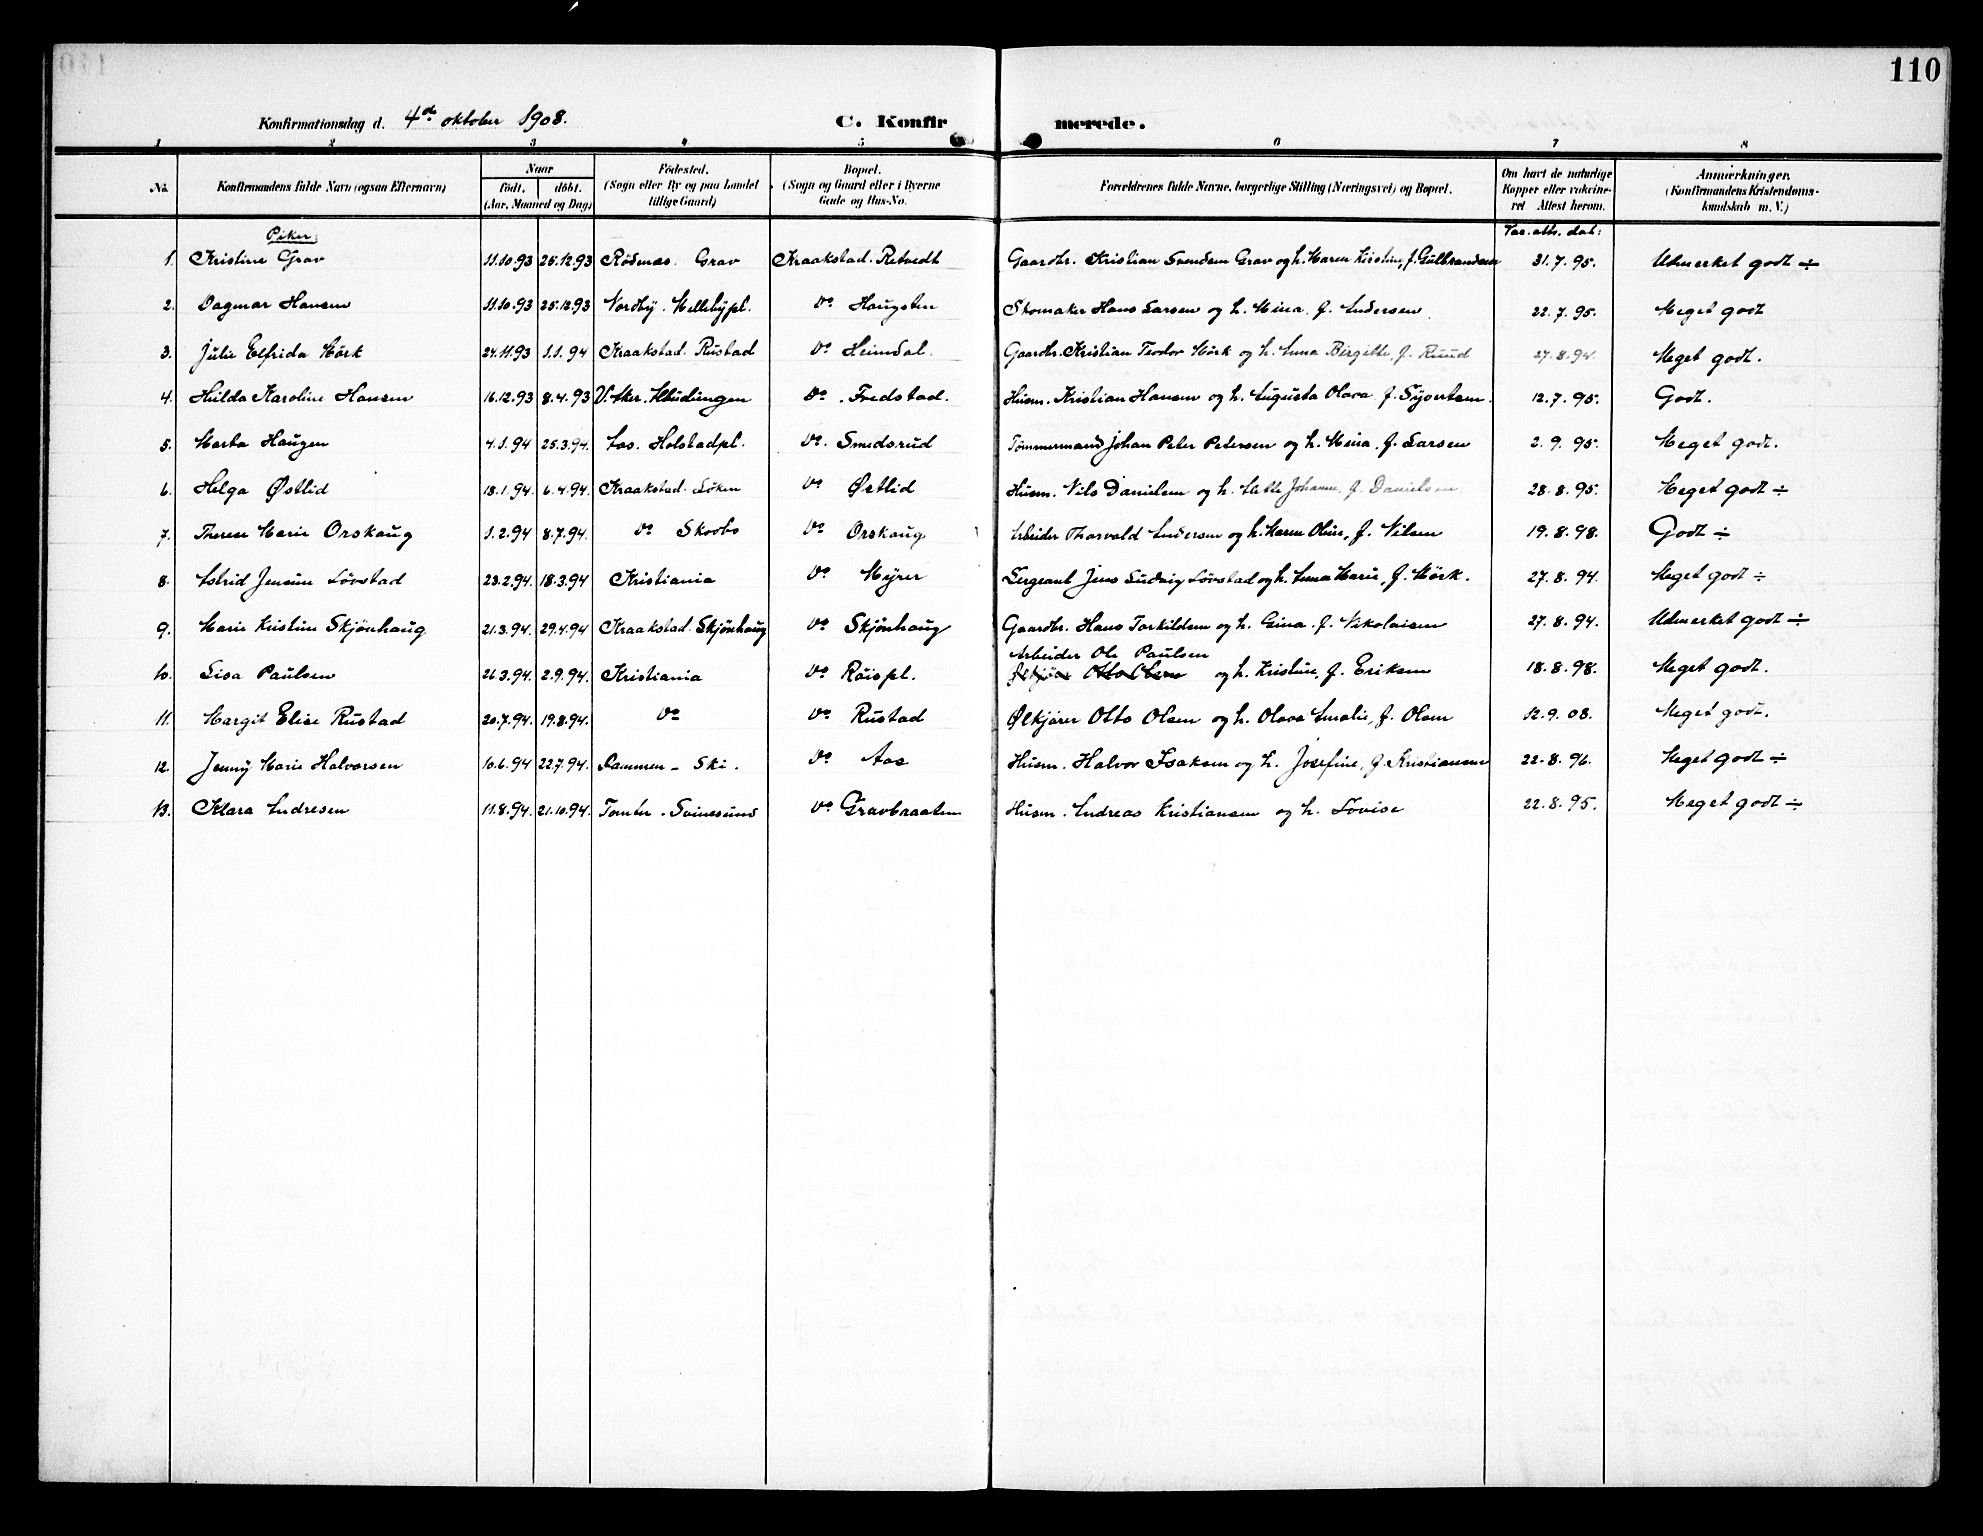 110
Konfirmationsdag d. 4de oktober 1908. C. Konfirmerede.
1 2 3 4 5 6 7 8
No. Konfirmandens fulde Navn (ogsaa Efternavn) Naar født. døbt. (Aar, Maaned og Dag) Fødested. (Sogn eller By og paa Landet tillige Gaard) Bopæl. (Sogn og Gaard eller i Byerne Gade og Hus-No. Forældrenes fulde Navne, borgerlige Stilling (Næringsvei) og Bopæl. Om havt de naturlige Kopper eller vakcineret Attest herom. Anmærkninger. (Konfirmandens Kristendomskundskab m. V.)
Piker: Vac. att. dat:
1. Kristine Grav 11.10.93 26.12.93 Rödenes. Grav Kraakstad. Retvedt Gaardbr. Kristian Svendsen Grav og h. Maren Kristine, f. Gulbrandsen 31.7.95. Udmerket godt ÷
2. Dagmar Hansen 11.10.93 25.12.93 Nordby. Mellebypl. Do Haugsten Skomaker Hans Larsen og h. Mina f. Andersen. 22.7.95. Meget godt
3. Julie Elfrida Mörk 24.11.93 1.1.94 Kraakstad. Rustad Do Heimdal. Gaardbr. Kristian Teodor Mörk og h. Anna Birgitte, f. Ruud 27.8.94. Meget godt.
4. Hilda Karoline Hansen 16.12.93 8.4.93 V. Aker. Do. Fredstad. Husm. Kristian Hansen og h. Augusta Olava f. Syvertsen. 12.7.95. Godt.
5. Marta Haugen 4.1.94 25.3.94. Aas. Holstadpl. Do. Smedsrud Tömmermand Johan Peter Petersen og h. Mina. f. Larsen 2.9.95. Meget godt.
6. Helga Østlid 18.1.94. 6.4.94. Kraakstad. Löken Do Østlid Husm. Nils Danielsen og h. Mette Johanne, f. Danielsen 28.8.95. Meget godt ÷
7. Therese Marie Orskaug 1.2.94 8.7.94. Do Skovbo Do Orskaug Arbeider Thorvald Andersen og h. Maren Oline, f. Nilsen 19.8.98. Godt ÷
8. Astrid Jensine Lövstad 23.2.94. 18.3.94 Kristiania Do Myrer Sergeant Jens Ludvig Lövstad og h. Anna Marie, f. Mörk. 27.8.94. Meget godt ÷
9. Marie Kristine Skjönhaug 21.3.94. 29.4.94 Kraakstad. Skjönhaug Do Skjönhaug Gaardbr. Hans Torkildsen og h. Gina. f. Nikolaisen 27.8.94. Udmerket godt ÷
Arbeider Ole Paulsen
10. Lisa Paulsen 26.3.94. 2.9.94. Kristiania Do Röispl. Ølkjörer Otto Olsen og h. Kristine, f. Eriksen 18.8.98. Meget godt.
11. Margit Elise Rustad 20.7.94. 19.8.94. Do Do Rustad Ølkjörer Otto Olsen og h. Olava Amalie, f. Olsen 12.9.08. Meget godt.
12. Jenny Marie Halvorsen 10.6.94 22.7.94. Dammen - Ski. Do Aas Husm. Halvor Isaksen og h. Josefine, f. Kristiansen 22.8.96. Meget godt ÷
13. Klara Andresen 11.8.94. 21.10.94. Tomter. Svinesund Do Gravbraaten Husm. Andreas Kristiansen og h. Lovise 22.8.95. Meget godt ÷